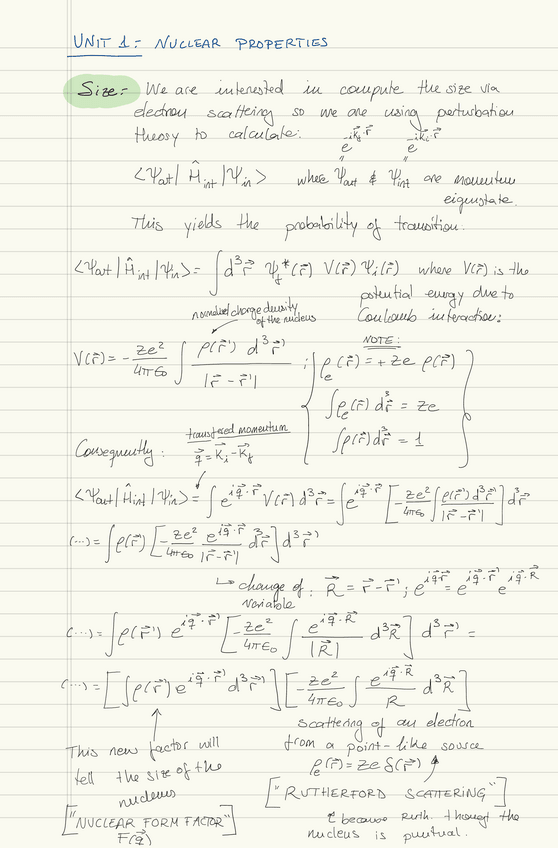 UNIT 1: NUCLEAR PROPERTIES
Size:- We are interested in compute the size via
electron scattering so we are using perturbation
theory to calculate:
e^{-i\vec{k}_f·\vec{r}} e^{-i\vec{k}_i·\vec{r}}
" "
<Ψout| Ĥint |Ψin> where Ψout & Ψint are momentum
eigenstate.
This yields the probability of transition.
<Ψout|Ĥint|Ψin> = ∫d³\vec{r} Ψf*(\vec{r}) V(\vec{r}) Ψi(\vec{r}) where V(\vec{r}) is the
potential energy due to
Coulomb interaction:
normalized charge density
of the nucleus
V(\vec{r}) = -Ze²/4πε₀ ∫ ρ(\vec{r}') d³\vec{r}' / |\vec{r} - \vec{r}'| ;
NOTE:
ρe(\vec{r}) = +Ze ρ(\vec{r})
∫ρe(\vec{r}) d³\vec{r} = Ze
∫ρ(\vec{r}) d³\vec{r} = 1
transfered momentum
Consequently: \vec{q} = \vec{K}i - \vec{K}f
<Ψout|Ĥint|Ψin> = ∫e^{i\vec{q}·\vec{r}} V(\vec{r}) d³\vec{r} = ∫e^{i\vec{q}·\vec{r}} [-Ze²/4πε₀ ∫ρ(\vec{r}') d³\vec{r}' / |\vec{r}-\vec{r}'|] d³\vec{r}
(...) = ∫ρ(\vec{r}) [-Ze²/4πε₀ e^{i\vec{q}·\vec{r}} / |\vec{r}-\vec{r}'| d³\vec{r}] d³\vec{r}'
↳ change of: \vec{R} = \vec{r}-\vec{r}' ; e^{i\vec{q}\vec{r}} = e^{i\vec{q}·\vec{r}'} e^{i\vec{q}·\vec{R}}
variable
(...) = ∫ρ(\vec{r}') e^{i\vec{q}·\vec{r}'} [-Ze²/4πε₀ ∫ e^{i\vec{q}·\vec{R}} / |\vec{R}| d³\vec{R}] d³\vec{r}' =
(...) = [∫ρ(\vec{r}') e^{i\vec{q}·\vec{r}'} d³\vec{r}'] [-Ze²/4πε₀ ∫ e^{i\vec{q}·\vec{R}} / R d³\vec{R}]
This new factor will
tell the size of the
nucleus
["NUCLEAR FORM FACTOR"]
F(\vec{q})
scattering of an electron
from a point-like source
ρe(\vec{r}) = Ze δ(\vec{r})
["RUTHERFORD SCATTERING"]
because Ruth. though the
nucleus is puntual.